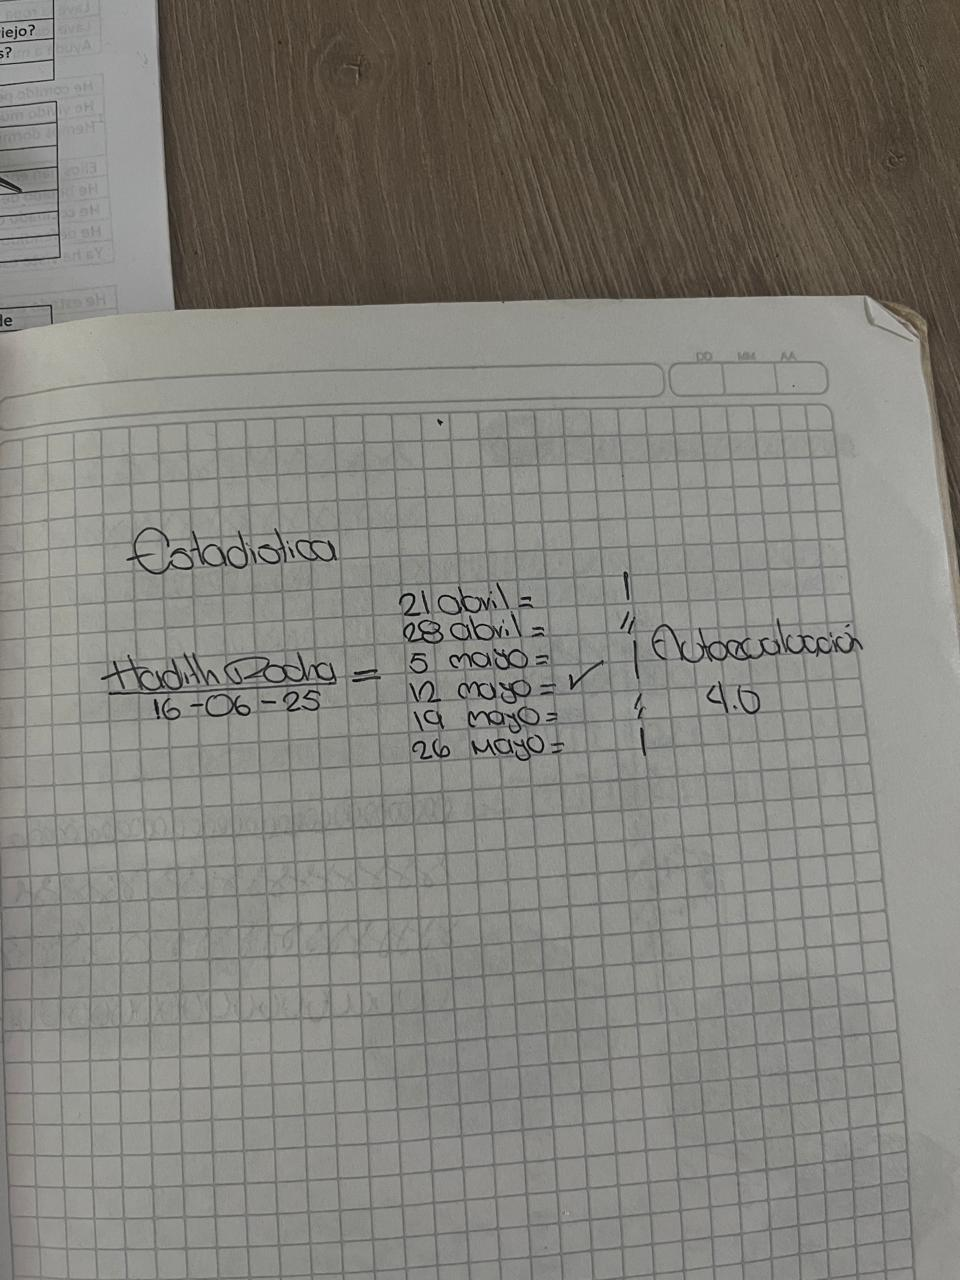 iejo?
s?
le
DD MM AA
Estadistica
21 abril =
28 abril =
5 mayo =
Hadith Rocha =
12 mayo = ✓
16-06-25
19 mayo =
26 Mayo =
Autoevaluación
4.0